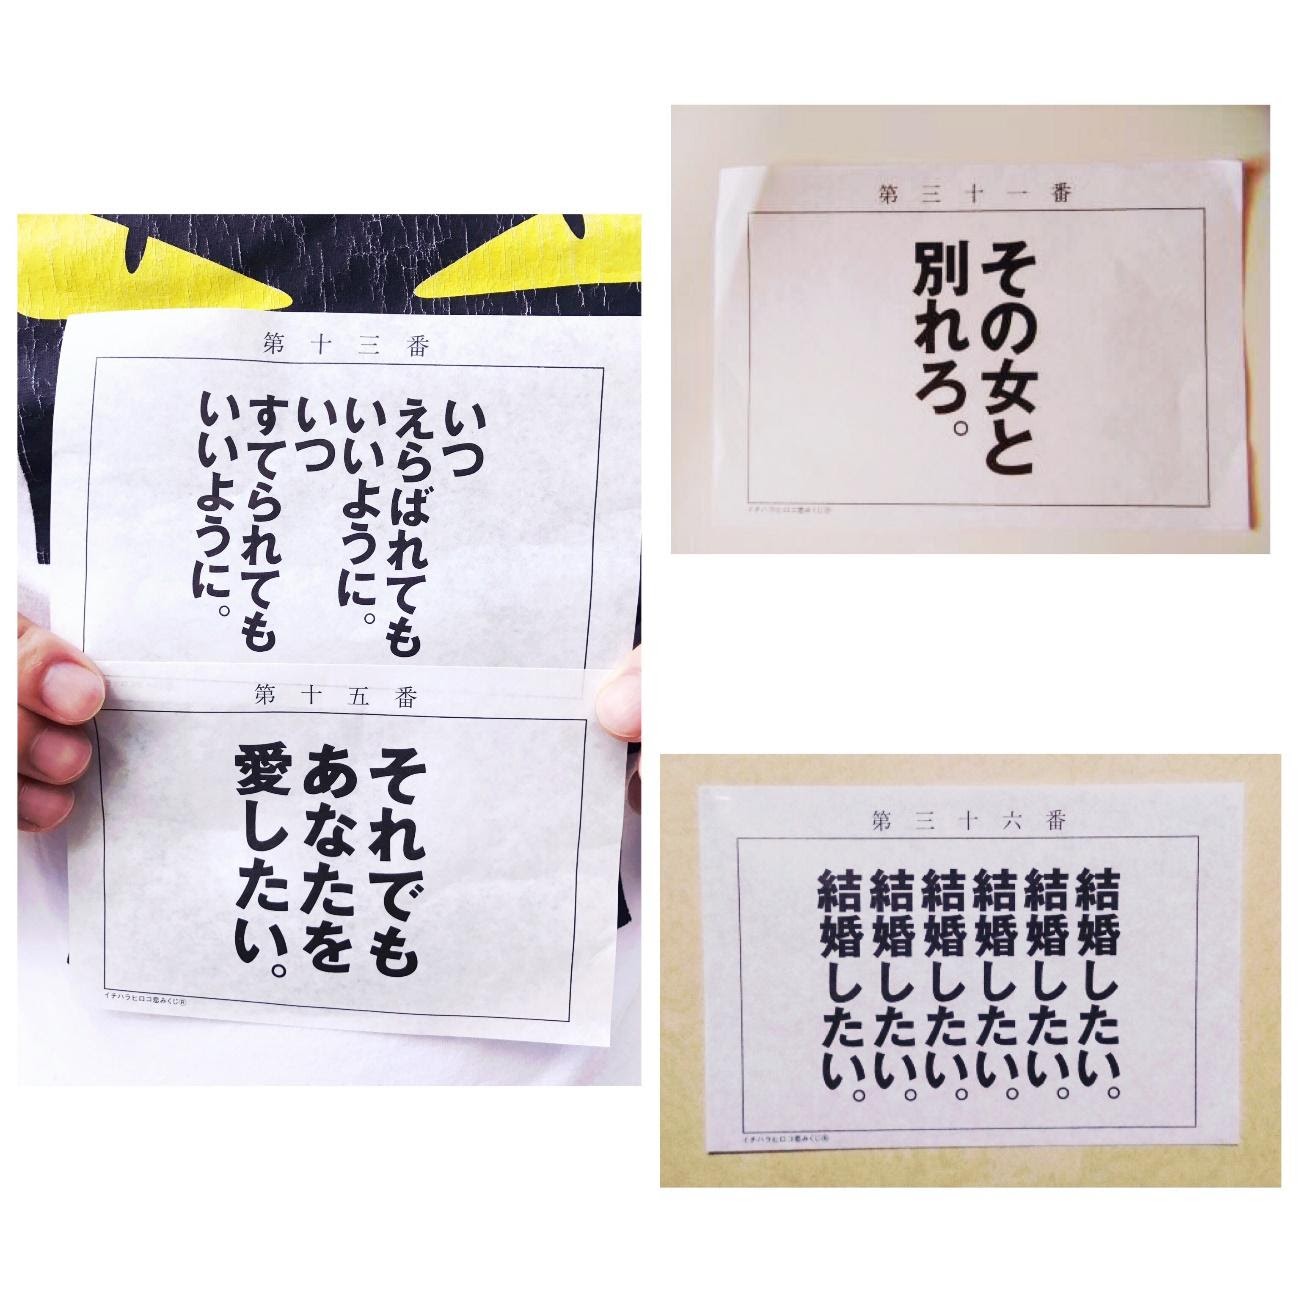 第十三番
いつ
えらばれても
いいように。
いつ
すてられても
いいように。
第十五番
それでも
あなたを
愛したい。
イチハラヒロコ恋みくじ®
第三十一番
その女と
別れろ。
イチハラヒロコ恋みくじ®
第三十六番
結婚したい。
結婚したい。
結婚したい。
結婚したい。
結婚したい。
結婚したい。
イチハラヒロコ恋みくじ®